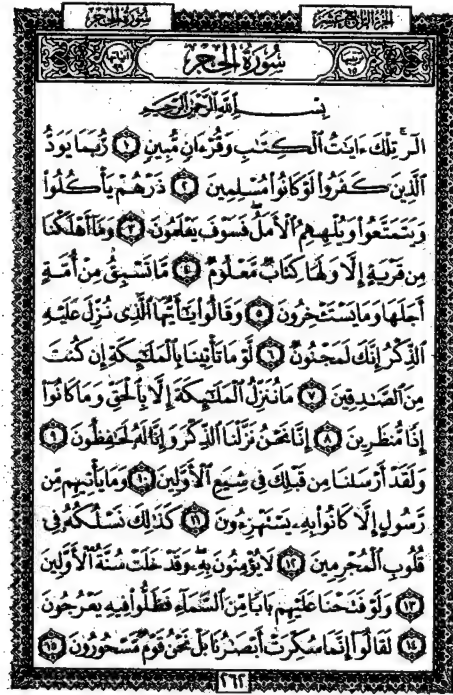 سُورَةُ الحِجْرِ
الجُزْءُ الرَّابِعَ عَشَرَ
سُورَةُ الحِجْرِ
بِسْمِ اللَّهِ الرَّحْمَٰنِ الرَّحِيمِ
الٓرۚ تِلْكَ ءَايَٰتُ ٱلْكِتَٰبِ وَقُرْءَانٍ مُّبِينٍ ١ رُّبَمَا يَوَدُّ
ٱلَّذِينَ كَفَرُوا۟ لَوْ كَانُوا۟ مُسْلِمِينَ ٢ ذَرْهُمْ يَأْكُلُوا۟
وَيَتَمَتَّعُوا۟ وَيُلْهِهِمُ ٱلْأَمَلُ ۖ فَسَوْفَ يَعْلَمُونَ ٣ وَمَآ أَهْلَكْنَا
مِن قَرْيَةٍ إِلَّا وَلَهَا كِتَابٌ مَّعْلُومٌ ٤ مَّا تَسْبِقُ مِنْ أُمَّةٍ
أَجَلَهَا وَمَا يَسْتَـْٔخِرُونَ ٥ وَقَالُوا۟ يَٰٓأَيُّهَا ٱلَّذِى نُزِّلَ عَلَيْهِ
ٱلذِّكْرُ إِنَّكَ لَمَجْنُونٌ ٦ لَّوْ مَا تَأْتِينَا بِٱلْمَلَٰٓئِكَةِ إِن كُنتَ
مِنَ ٱلصَّٰدِقِينَ ٧ مَا نُنَزِّلُ ٱلْمَلَٰٓئِكَةَ إِلَّا بِٱلْحَقِّ وَمَا كَانُوٓا۟
إِذًا مُّنظَرِينَ ٨ إِنَّا نَحْنُ نَزَّلْنَا ٱلذِّكْرَ وَإِنَّا لَهُۥ لَحَٰفِظُونَ ٩
وَلَقَدْ أَرْسَلْنَا مِن قَبْلِكَ فِى شِيَعِ ٱلْأَوَّلِينَ ١٠ وَمَا يَأْتِيهِم مِّن
رَّسُولٍ إِلَّا كَانُوا۟ بِهِۦ يَسْتَهْزِءُونَ ١١ كَذَٰلِكَ نَسْلُكُهُۥ فِى
قُلُوبِ ٱلْمُجْرِمِينَ ١٢ لَا يُؤْمِنُونَ بِهِۦ ۖ وَقَدْ خَلَتْ سُنَّةُ ٱلْأَوَّلِينَ
١٣ وَلَوْ فَتَحْنَا عَلَيْهِم بَابًا مِّنَ ٱلسَّمَآءِ فَظَلُّوا۟ فِيهِ يَعْرُجُونَ
١٤ لَقَالُوٓا۟ إِنَّمَا سُكِّرَتْ أَبْصَٰرُنَا بَلْ نَحْنُ قَوْمٌ مَّسْحُورُونَ ١٥
٢٦٢